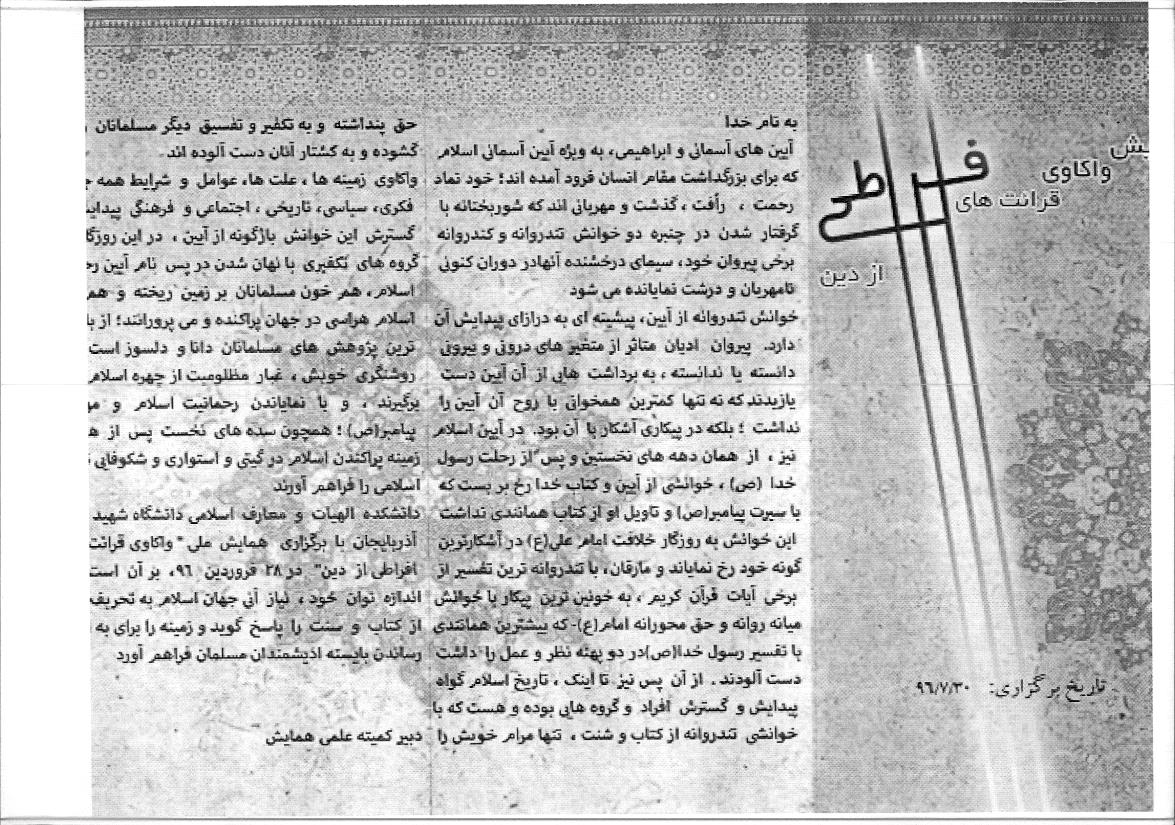 یش
واکاوی
قرائت های
افراطی
از دین
تاریخ برگزاری: ۹۶/۷/۳۰
به نام خدا
آیین های آسمانی و ابراهیمی، به ویژه آیین آسمانی اسلام
که برای بزرگداشت مقام انسان فرود آمده اند؛ خود نماد
رحمت ، رأفت ، گذشت و مهربانی اند که شوربختانه با
گرفتار شدن در چنبره دو خوانش تندروانه و کندروانه
برخی پیروان خود، سیمای درخشنده آنهادر دوران کنونی
نامهربان و درشت نمایانده می شود
خوانش تندروانه از آیین، پیشینه ای به درازای پیدایش آن
دارد. پیروان ادیان متاثر از متغیر های درونی و بیرونی
دانسته یا ندانسته ، به برداشت هایی از آن آیین دست
یازیدند که نه تنها کمترین همخوانی با روح آن آیین را
نداشت ؛ بلکه در پیکاری آشکار با آن بود. در آیین اسلام
نیز ، از همان دهه های نخستین و پس از رحلت رسول
خدا (ص) ، خوانشی از آیین و کتاب خدا رخ بر بست که
با سیرت پیامبر(ص) و تاویل او از کتاب همانندی نداشت
این خوانش به روزگار خلافت امام علی(ع) در آشکارترین
گونه خود رخ نمایاند و مارقان، با تندروانه ترین تفسیر از
برخی آیات قرآن کریم ، به خونین ترین پیکار با خوانش
میانه روانه و حق محورانه امام(ع)- که بیشترین همانندی
با تفسیر رسول خدا(ص)در دو پهنه نظر و عمل را داشت
دست آلودند . از آن پس نیز تا اینک ، تاریخ اسلام گواه
پیدایش و گسترش افراد و گروه هایی بوده و هست که با
خوانشی تندروانه از کتاب و سنت ، تنها مرام خویش را
حق پنداشته و به تکفیر و تفسیق دیگر مسلمانان
گشوده و به کشتار آنان دست آلوده اند.
واکاوی زمینه ها ، علت ها، عوامل و شرایط همه ج
فکری، سیاسی، تاریخی ، اجتماعی و فرهنگی پیدای
گسترش این خوانش بازگونه از آیین ، در این روزگا
گروه های تکفیری با نهان شدن در پس نام آیین رح
اسلام ، هم خون مسلمانان بر زمین ریخته و هم
اسلام هراسی در جهان پراکنده و می پرورانند؛ از با
ترین پژوهش های مسلمانان دانا و دلسوز است
روشنگری خویش ، غبار مظلومیت از چهره اسلام
برگیرند ، و با نمایاندن رحمانیت اسلام و مو
پیامبر(ص) ؛ همچون سده های نخست پس از ه
زمینه پراکندن اسلام در گیتی و استواری و شکوفایی
اسلامی را فراهم آورند
دانشکده الهیات و معارف اسلامی دانشگاه شهید
آذربایجان با برگزاری همایش ملی " واکاوی قرائت
افراطی از دین" در ۲۸ فروردین ۹۶، بر آن است
اندازه توان خود ، نیاز آنی جهان اسلام به تحریف
از کتاب و سنت را پاسخ گوید و زمینه را برای به
رساندن بایسته اندیشمندان مسلمان فراهم آورد
دبیر کمیته علمی همایش